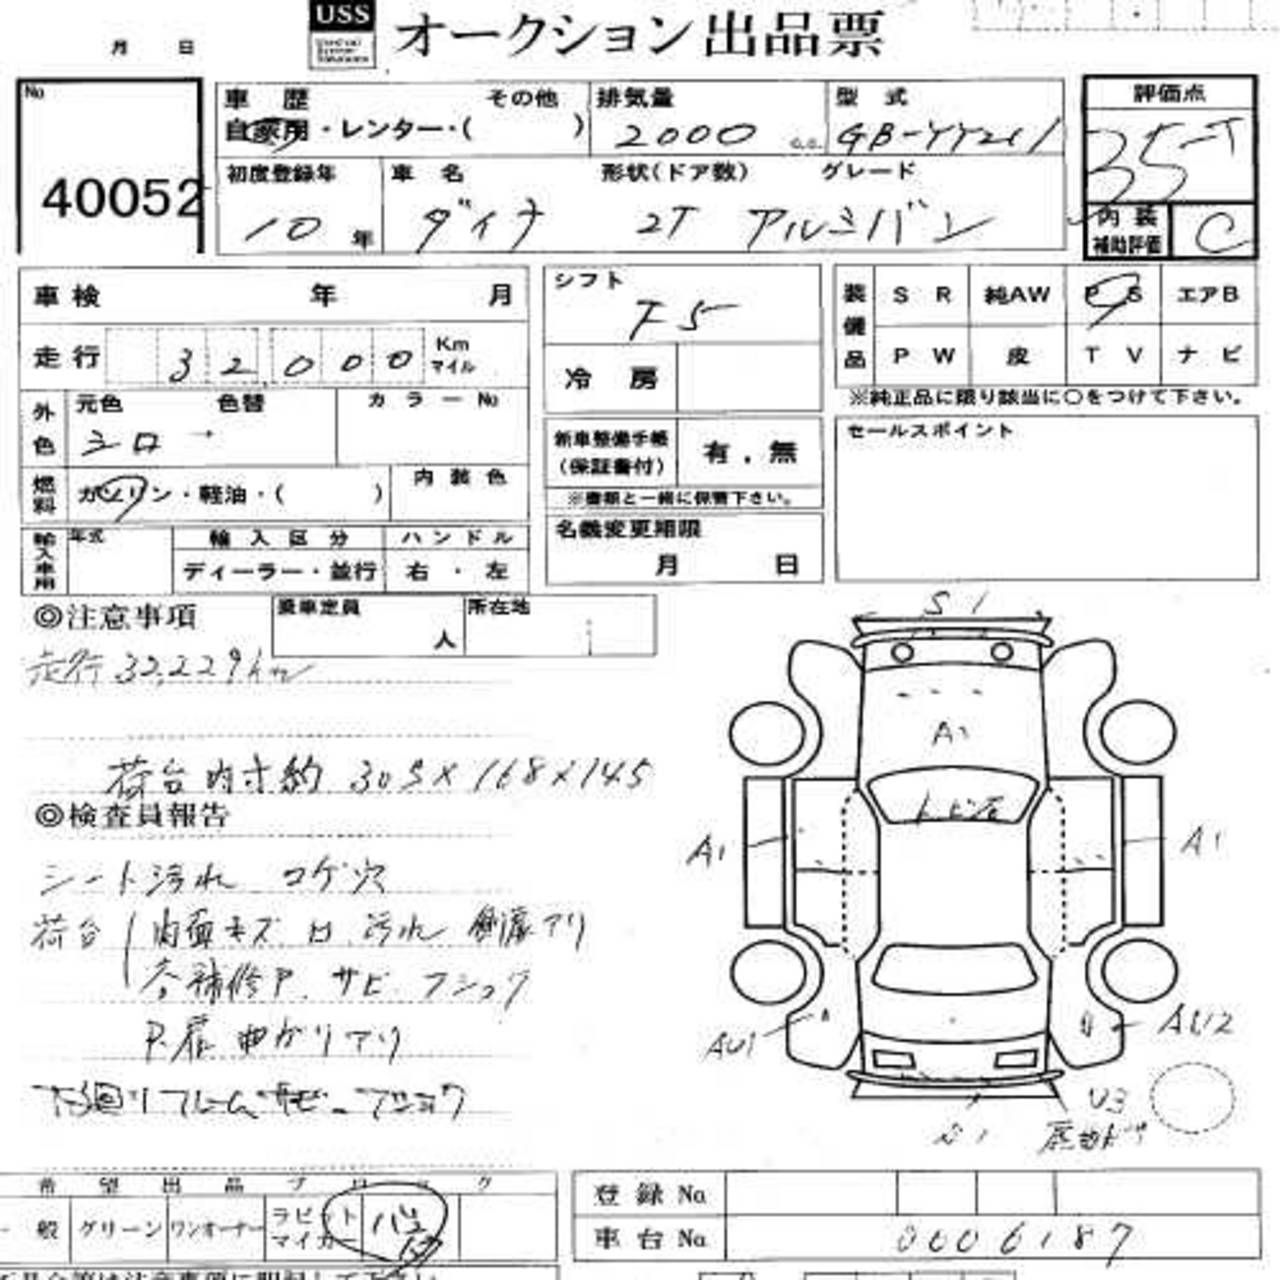 USS オークション出品票
月 日
No
40052
車歴 その他
自家用・レンター・( )
排気量
2000 c.c.
型式
GB-YY211
評価点
3.5
初度登録年
10年
車名
ダイナ
形状(ドア数)
2T アルミバン
グレード
内装
補助評価
C
車検 年 月
走行 32,000 Km
マイル
シフト
F5
冷房
装備品
SR 純AW PS エアB
PW 皮 TV ナビ
※純正品に限り該当に○をつけて下さい。
外色
元色 色替
シロ →
カラーNo
燃料
ガソリン・軽油・( )
内装色
新車整備手帳
(保証書付)
有．無
※書類と一緒に保管下さい。
セールスポイント
輸入車用
年式
輸入区分 ハンドル
ディーラー・並行 右・左
名義変更期限
月 日
◎注意事項
乗車定員
人
所在地
走行 32,229km
荷台内寸約 305×168×145
◎検査員報告
シート汚れ コゲ穴
荷台 内面キズ 凹 汚れ
補修P. サビ フショク
P.扉 曲がりアリ
下廻り フレーム サビ フショク
S1
A1
トビ石
A1
A1
AU1
AU2
U3
希望出品ブロック
一般 グリーン ワンオーナー ラビット
マイカー
登録No
車台No 0006187